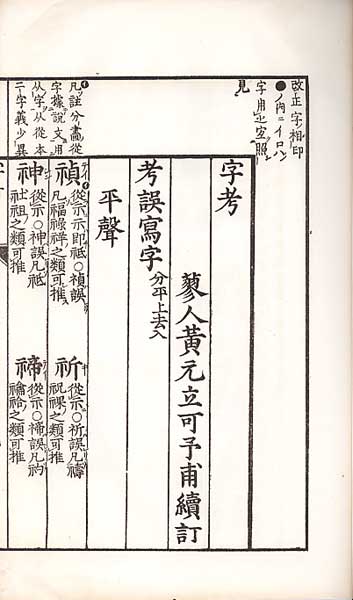 改正字相印
●ノ内ニイロハ
字用之空照
見
凡註分畵從
字據說文用
从字从從本
二字義少異
字考
蓼人黄元立可予甫續訂
考誤寫字 分平上去入
平聲
禎 從示示即祗○禎誤
凡福祿祥之類可推
祈 從示○祈誤凡禱
祝祼之類可推
神 從示○神誤凡祗
社祖之類可推
禘 從示○禘誤凡礿
禴祫之類可推